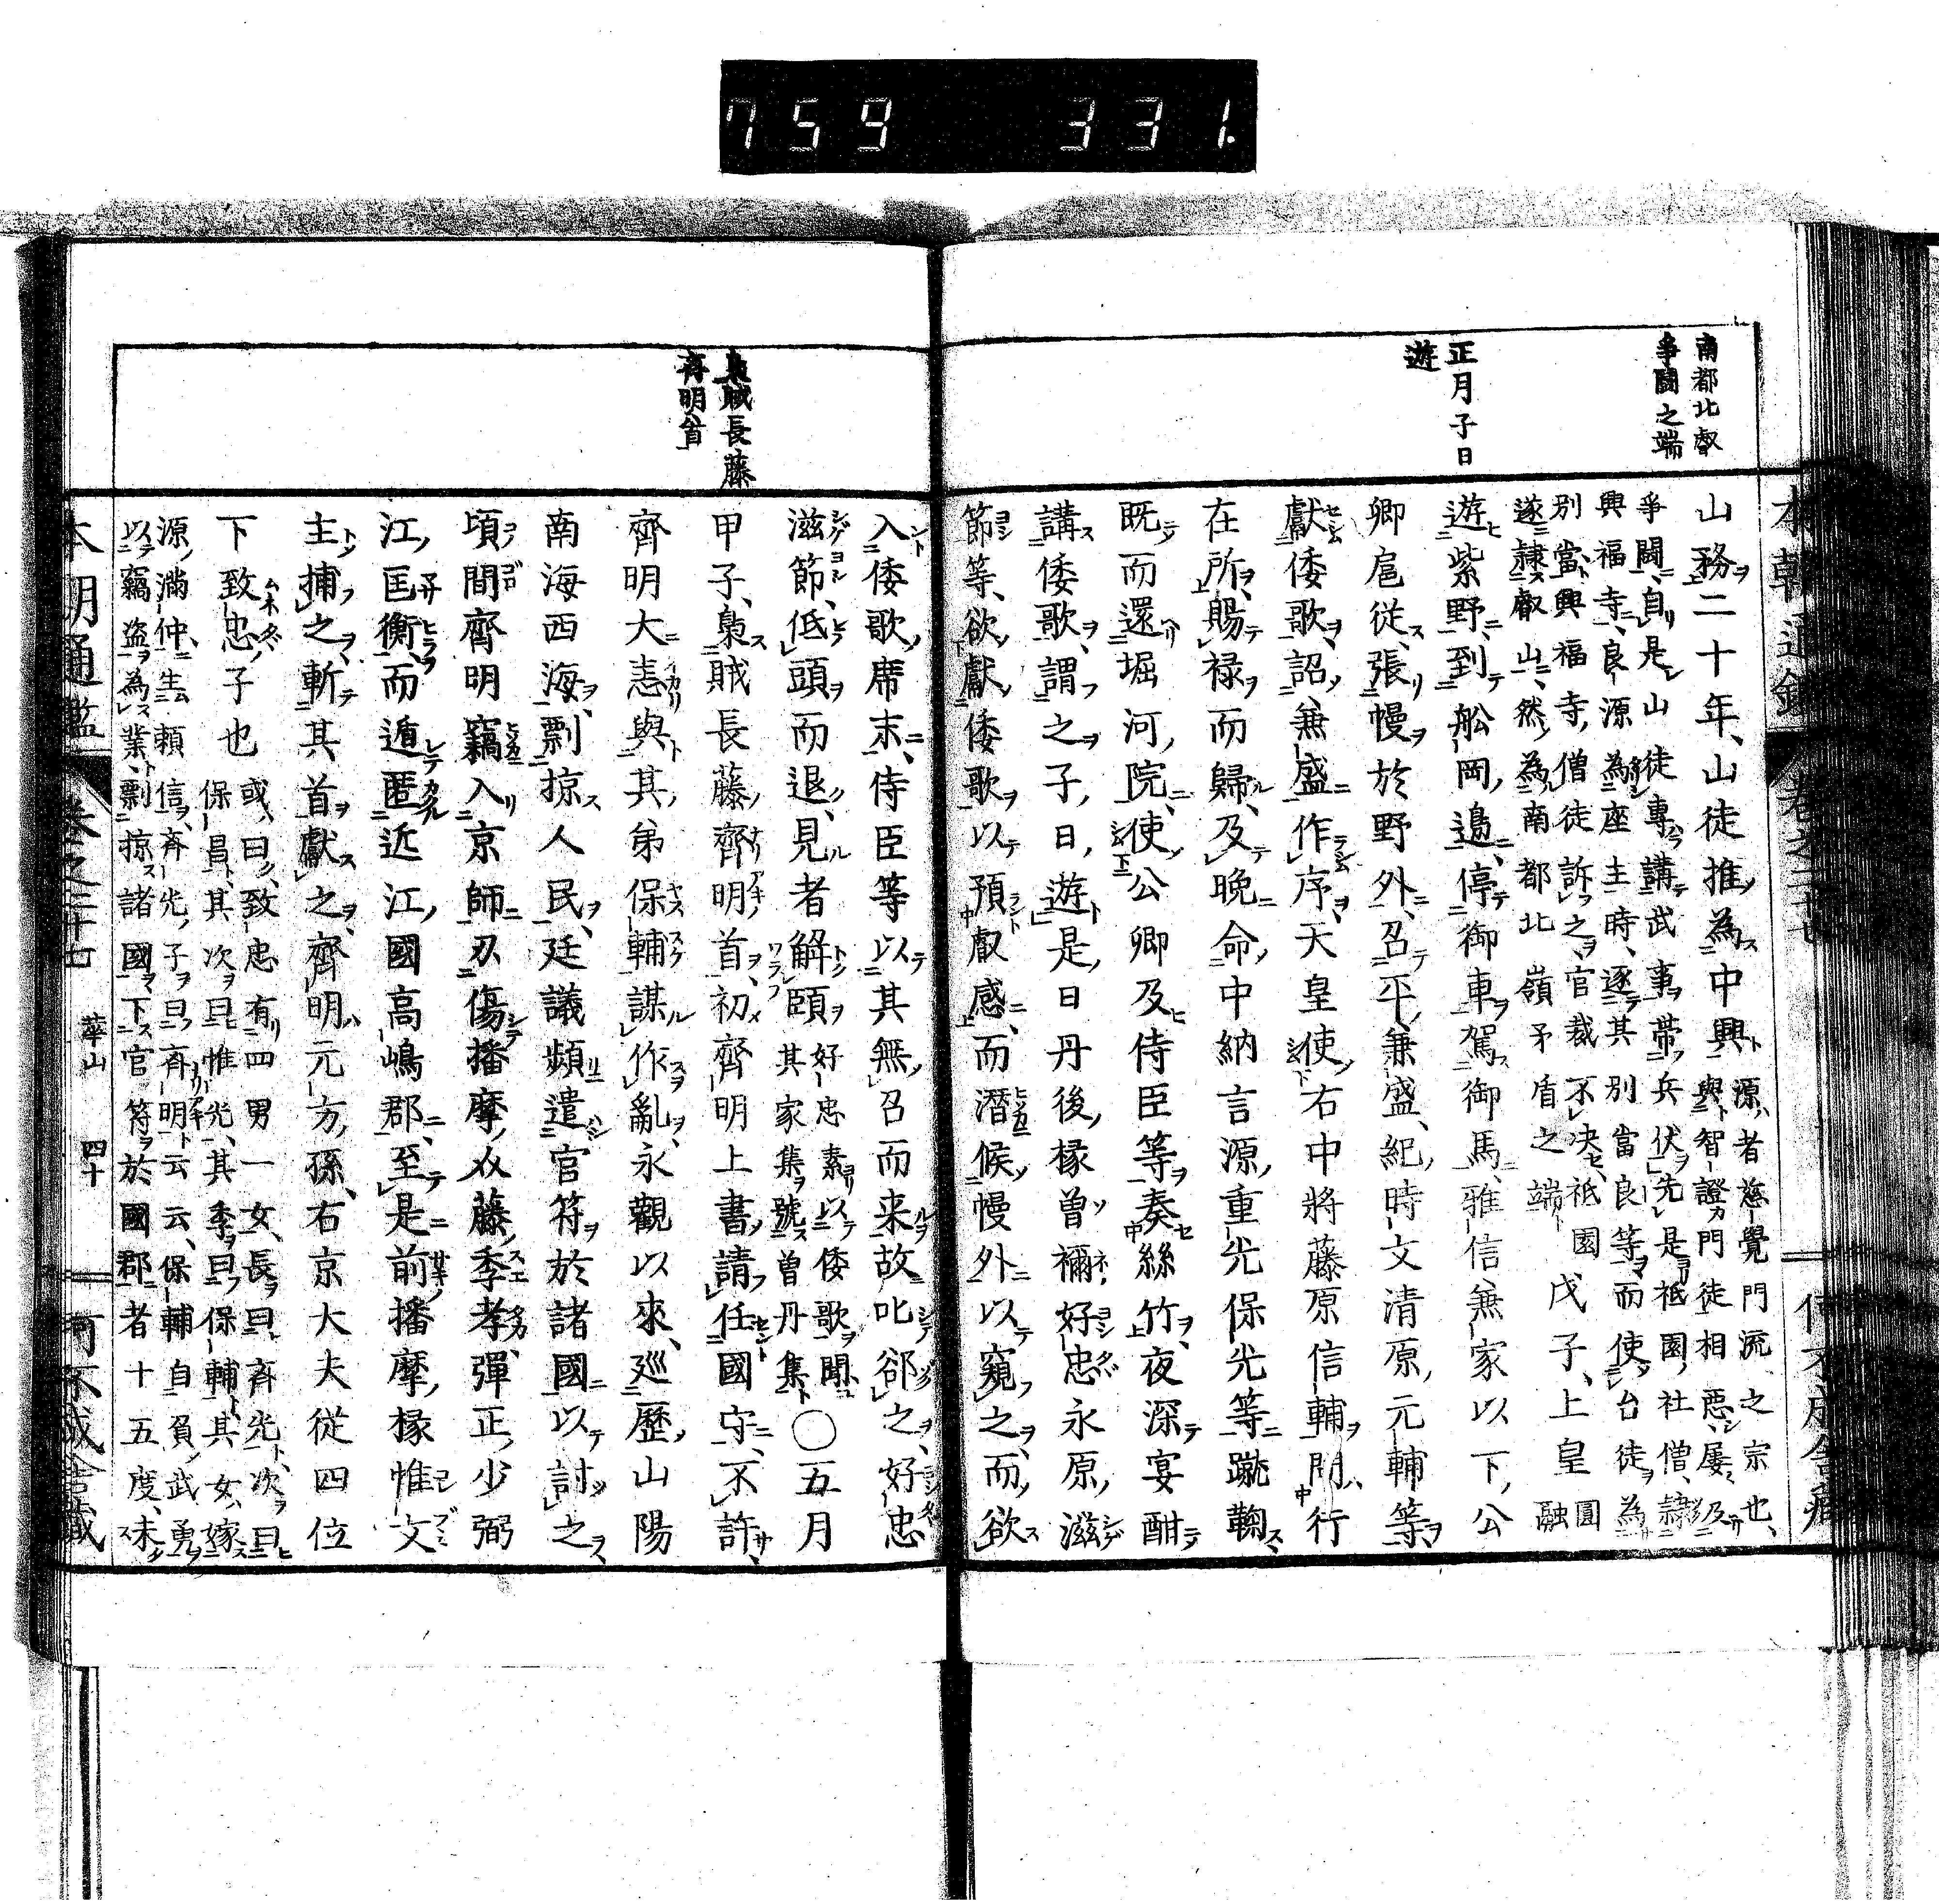 759 331.
南都北叡
爭鬪之端
正月子日
遊
山務二十年、山徒推為中興
源者慈覺門流之宗也、
與智證門徒相惡、屢及
爭鬪、自是山徒專講武事、帶兵伏、先是祇園社僧、隷
興福寺、良源為座主時、逐其別當良等、而使台徒為
別當、興福寺僧徒訴之、官裁不决、祇園
遂隷叡山、然為南都北嶺矛盾之端
戊子、上皇
圓
融
遊紫野、到舩岡邉、停御車、駕御馬、雅信兼家以下、公
卿扈從、張幔於野外、召平兼盛、紀時文清原元輔等、
獻倭歌、詔兼盛作序、天皇使右中將藤原信輔問行
在所、賜祿而歸、及晩命中納言源重光保光等蹴鞠、
既而還堀河院、使公卿及侍臣等奏絲竹、夜深宴酣
講倭歌、謂之子日遊、是日丹後掾曽禰好忠永原滋
節等、欲獻倭歌以預叡感、而潜候幔外以窺之、而欲
入倭歌席末、侍臣等以其無召而来故叱郤之、好忠
滋節、低頭而退、見者解頤
好忠素以倭歌聞、
其家集號曽丹集
〇五月
甲子、梟賊長藤齊明首、初齊明上書、請任國守、不許、
齊明大恚與其弟保輔謀作亂、永觀以來、廵歷山陽
南海西海、剽掠人民、廷議頻遣官符於諸國以討之、
頃間齊明竊入京師、刄傷播摩从藤季孝、彈正少弼
江匡衡、而遁匿近江國高嶋郡、至是前播摩掾惟文
主捕之、斬其首獻之、齊明元方孫、右京大夫從四位
下致忠子也
或曰、致忠有四男一女、長曰斉光、次曰
保昌、其次曰惟光、其季曰保輔、其女嫁
源滿仲、生頼信、斉光子曰斉明云云、保輔自負武勇
以竊盗為業、剽掠諸國、下官符於國郡者十五度、未
本朝通鑑
卷之二十七
華山
四十